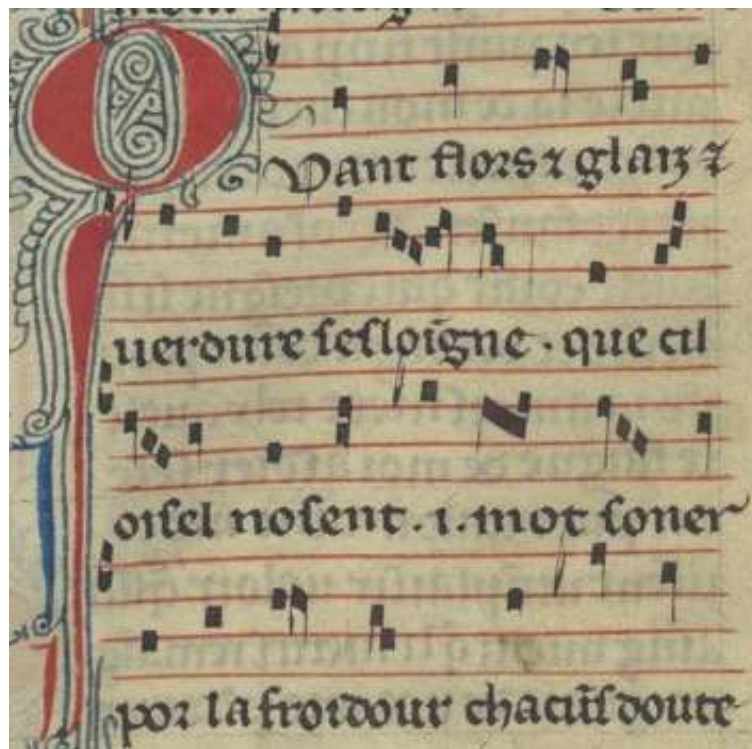 Quant flors ⁊ glaiz ⁊
uerdure sesloigne . que cil
oisel nosent . i . mot soner
por la froidour chacūs doute